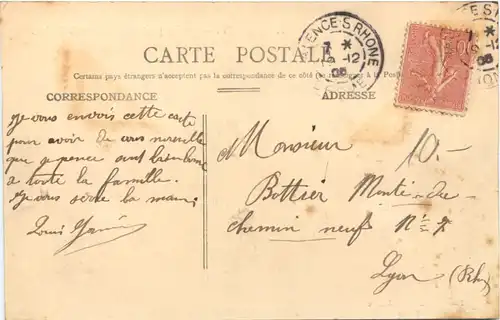 CARTE POSTALE
Certains pays étrangers n'acceptent pas la correspondance de ce côté (se à la Poste)
CORRESPONDANCE
ADRESSE
VALENCE S RHONE
* -12
06
Je vous envois cette carte
pour avoir de vos nouvelle
que je pence sont bien bonne
a toute la famille.
Je vous serre la main
Louis
10.-
A Monsieur
Bottier Montée du
chemin neuf N= 7
Lyon (Rh)